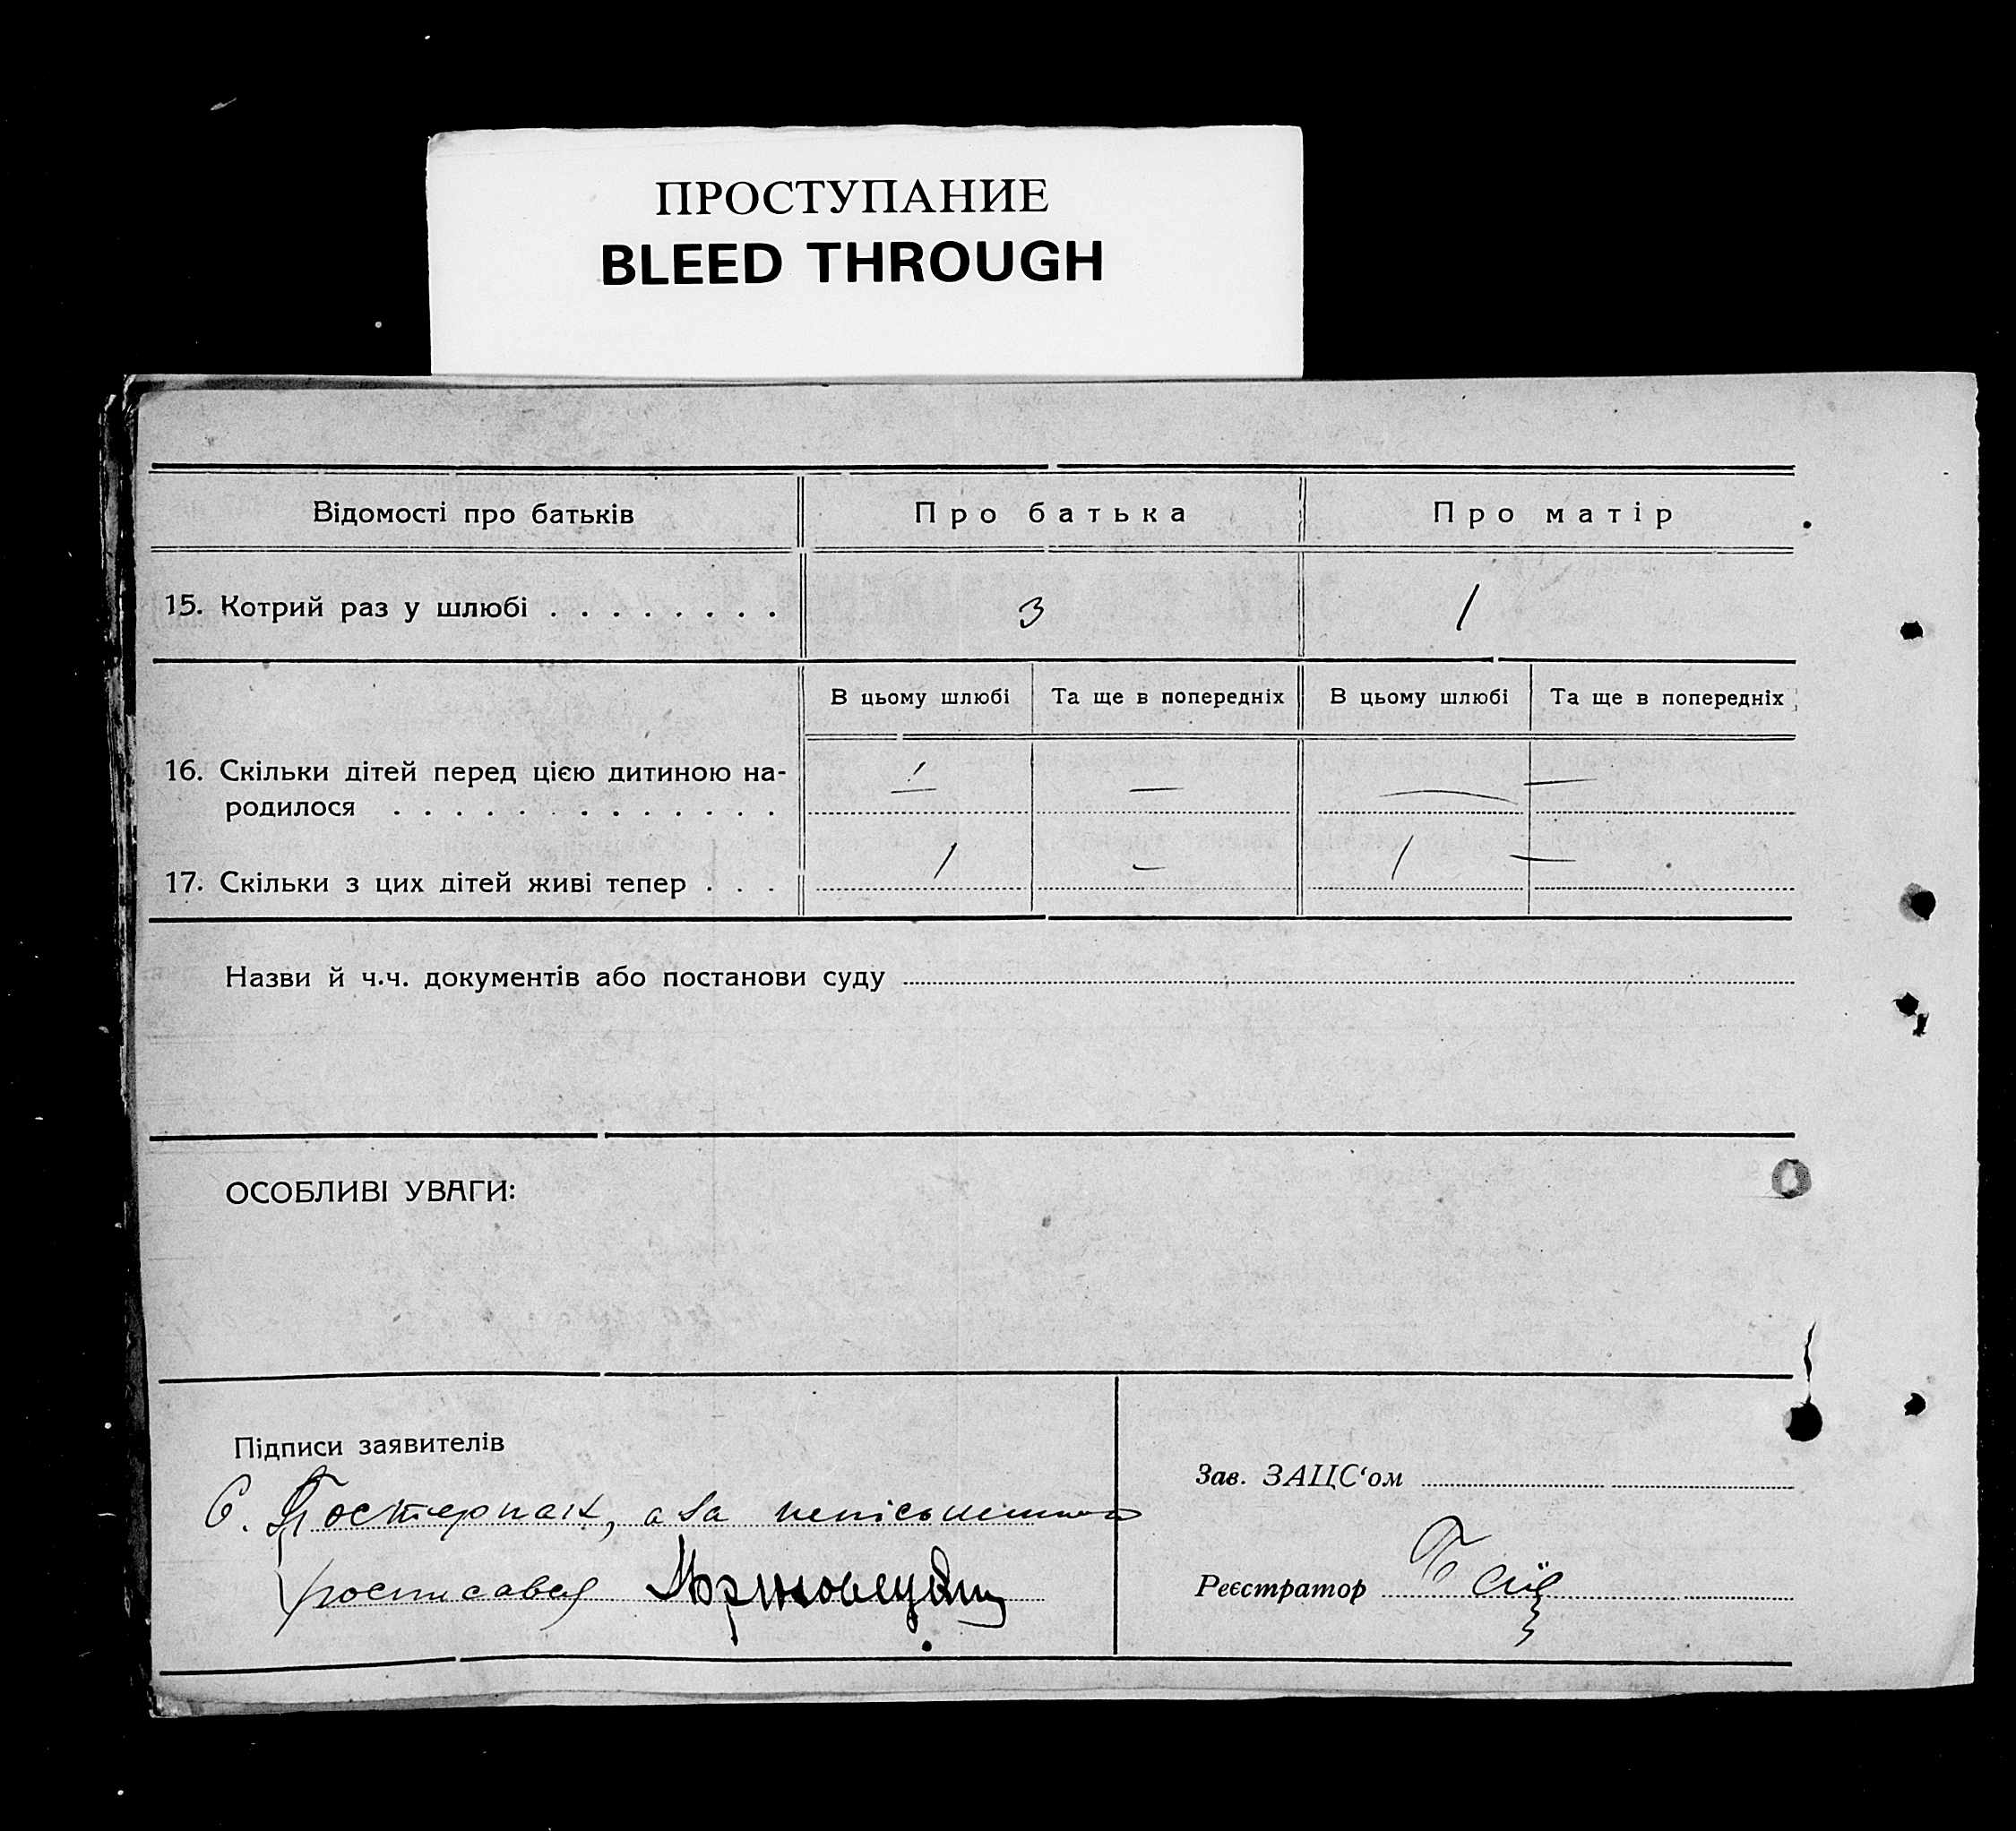 ПРОСТУПАНИЕ
BLEED THROUGH
Відомості про батьків Про батька Про матір
15. Котрий раз у шлюбі . . . . . . . . 3 1
В цьому шлюбі Та ще в попередніх В цьому шлюбі Та ще в попередніх
16. Скільки дітей перед цією дитиною на- 1 — — —
родилося . . . . . . . . . . . . .
17. Скільки з цих дітей живі тепер . . . 1 — 1 —
Назви й ч.ч. документів або постанови суду
ОСОБЛИВІ УВАГИ:
Підписи заявителів
Зав. ЗАЦС‘ом
С. Постернак, а за
росписався
Реєстратор